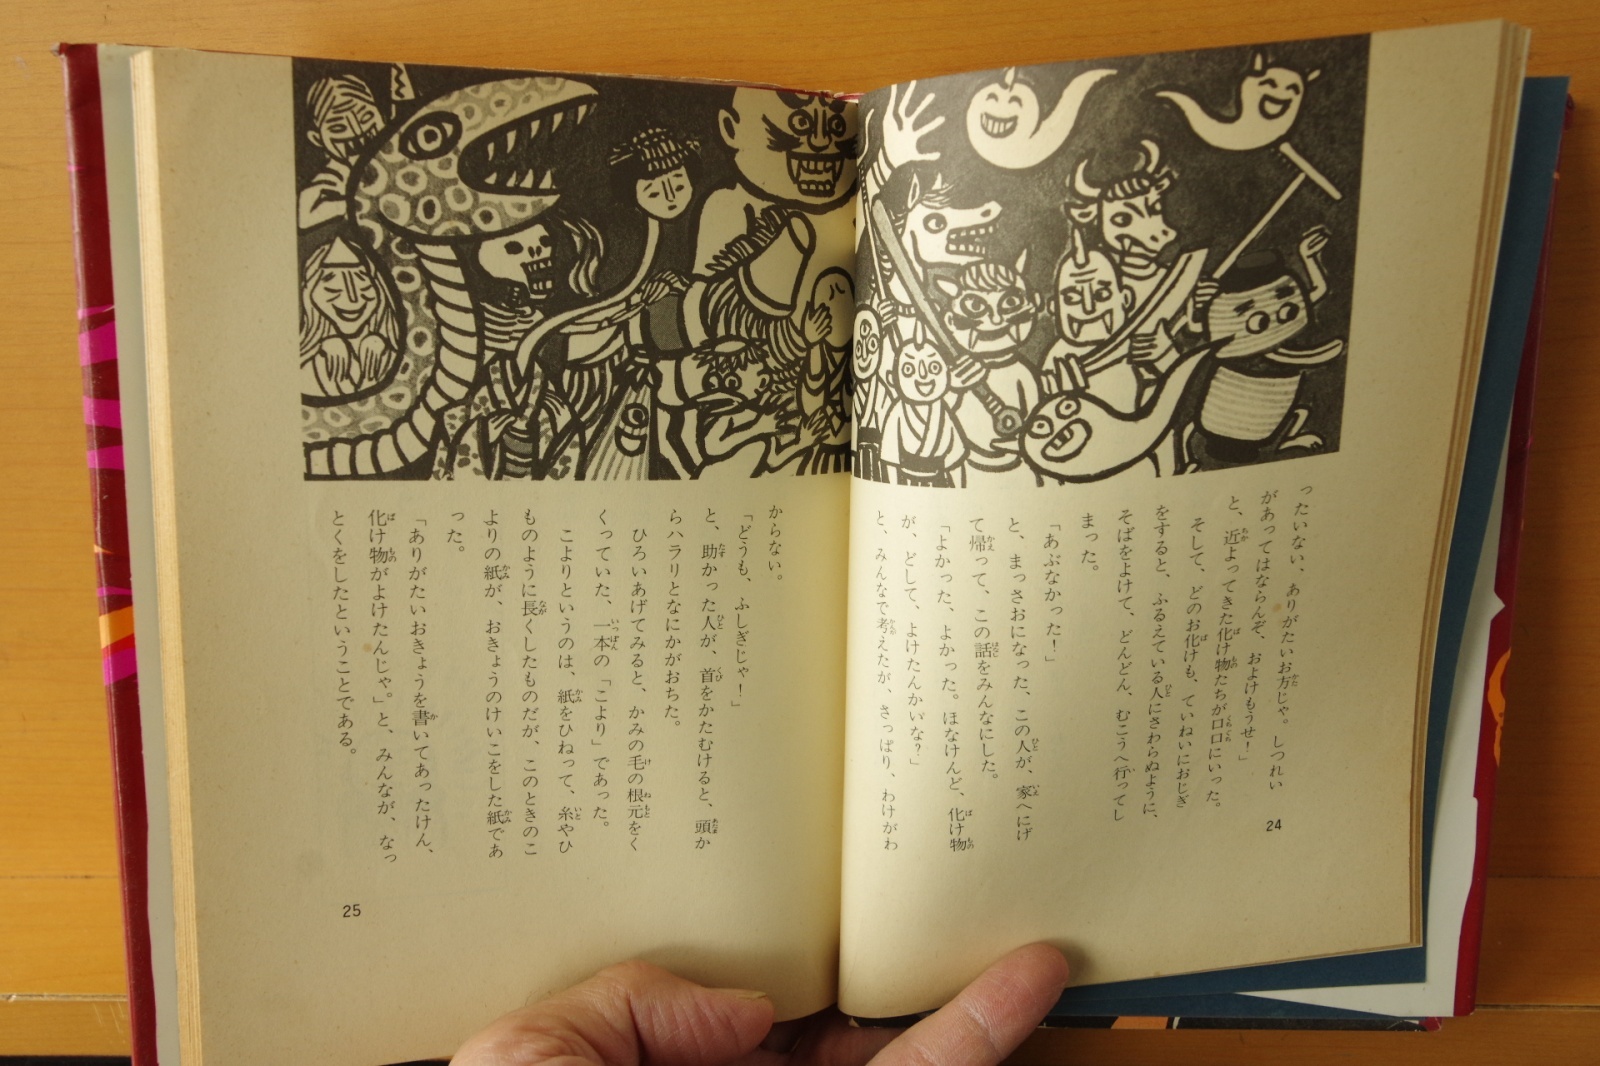 ったいない、ありがたいお方じゃ。しつれい
があってはならんぞ、およけもうせ！」
と、近よってきた化け物たちが口口にいった。
そして、どのお化けも、ていねいにおじぎ
をすると、ふるえている人にさわらぬように、
そばをよけて、どんどん、むこうへ行ってし
まった。
「あぶなかった！」
と、まっさおになった、この人が、家へにげ
て帰って、この話をみんなにした。
「よかった、よかった。ほなけんど、化け物
が、どして、よけたんかいな？」
と、みんなで考えたが、さっぱり、わけがわ
24
からない。
「どうも、ふしぎじゃ！」
と、助かった人が、首をかたむけると、頭か
らハラリとなにかがおちた。
ひろいあげてみると、かみの毛の根元をく
くっていた、一本の「こより」であった。
こよりというのは、紙をひねって、糸やひ
ものように長くしたものだが、このときのこ
よりの紙が、おきょうのけいこをした紙であ
った。
「ありがたいおきょうを書いてあったけん、
化け物がよけたんじゃ。」と、みんなが、なっ
とくをしたということである。
25